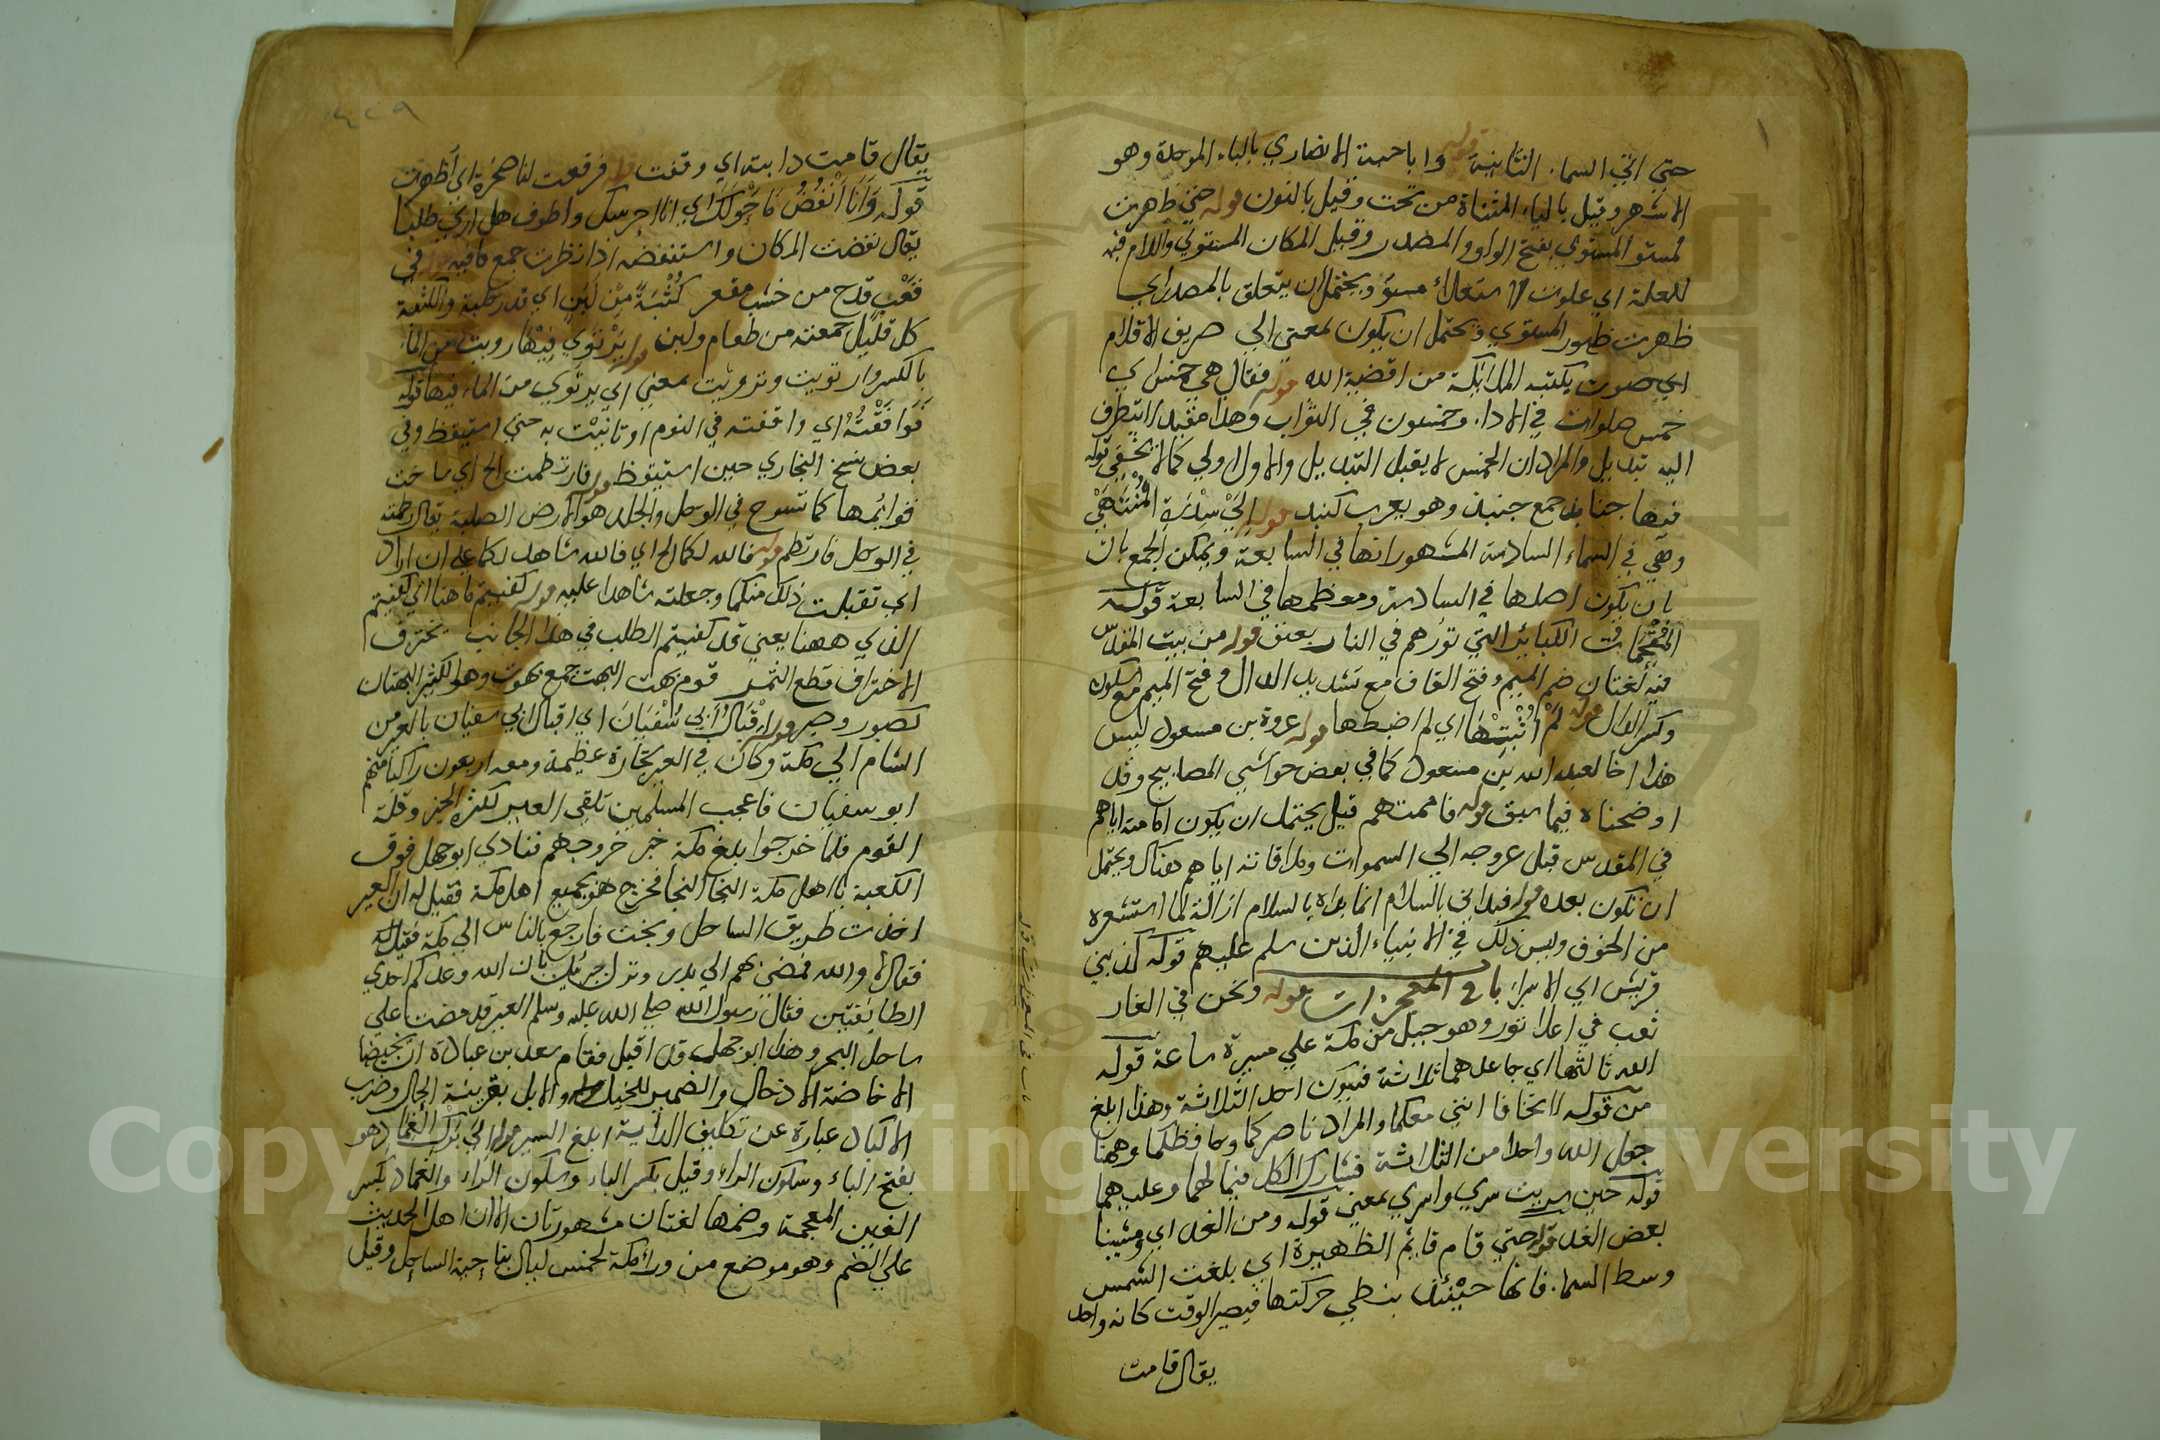 حتي اتي السماء الثانية قوله وابا حبة الانصاري بالباء الموحدة وهو
الاشهر وقيل بالياء المثناة من تحت وقيل بالنون قوله حتي ظهرت
لمستو المستوي بفتح الواو والمصدر وقيل المكان المستوي واللام فيه
للعلة اي علوت لاستعلاء مستو ويحتمل ان يتعلق بالمصدر اي
ظهرت ظهور المستوي ويحتمل ان يكون بمعنى الي صريف الاقلام
اي صوت يكتبه الملائكة من اقضية الله قوله فقال هي خمس اي
خمس صلوات في الاداء وخمسون في الثواب وهذا مقيد لا يتطرف
اليه تبديل والمراد ان الخمس لا يقبل التبديل والاول اولي كما لا يخفي قوله
فيها جنابذ جمع جنبذ وهو يعرب كنبد قوله الي سدرة المنتهي
وهي في السماء السادسة المشهور انها في السابعة ويمكن الجمع بان
بان يكون اصلها في السادسة ومعظمها في السابعة قوله
المقحمات الكبائر التي توردهم في النار بعنف قوله من بيت المقدس
فيه لغتان ضم الميم وفتح القاف مع تشديد الدال وفتح الميم مع سكون
وكسر الدال قوله لم اثبتها اي لم اضبطها قوله عروة بن مسعود ليس
هذا اخا لعبد الله بن مسعود كما في بعض حواشي المصابيح وقد
اوضحناه فيما سبق قوله فاممتهم قيل يحتمل ان يكون امامته اياهم
في المقدس قبل عروجه الي السموات وملاقاته اياهم هناك ويحتمل
ان تكون بعده قوله فبدأني بالسلام انما بدأه بالسلام ازالة لما استشعره
من الخوف وليس ذلك في الانبياء الذين سلم عليهم قوله كذبني
قريش اي الاسراء باب المعجزات قوله ونحن في الغار
ثقب في اعلا ثور وهو جبل من مكة علي مسيرة ساعة قوله
الله ثالثهما اي جاعلهما ثلاثة فيكون احد الثلاثة وهذا ابلغ
من قوله لا تخافا انني معكما والمراد ناصركما وحافظكما وههنا
جعل الله واحدا من الثلاثة فشارك الكل فيما لهما وعليهما
قوله حين سريت سري واسري بمعني قوله ومن الغد اي ومشينا
بعض الغد قوله حتي قام قايم الظهيرة اي بلغت الشمس
وسط السماء فانها حينئذ بنطي حركتها فيصير الوقت كانه واحد
يقال قامت
يقال قامت دابته اي وقفت قوله فرفعت لنا صخرة اي اظهرت
قوله وانا انفض ما حولك اي انا احرسك واطوف هل اري طلبا
يقال نفضت المكان واستنفضه اذا نظرت جمع ما فيه قوله في
قعب قدح من خشب مقعر كثبة من لبن اي قدر حلبة والكثبة
كل قليل جمعته من طعام ولبن قوله يرتوي فيها رويت من الماء
بالكسر وارتويت وترويت بمعني اي يرتوي من الماء فيها قوله
فوافقته اي وافقته في النوم او تانيت به حتي استيقظ وفي
بعض نسخ البخاري حين استيقظ قوله فارتطمت الخ اي ساخت
قوائمها كما تسوخ في الوحل والجلد هو الارض الصلبة يقال رطمته
في الوحل فارتطم قوله فالله لكما الخ اي فالله شاهد لكما علي ان اراد
اي تقبلت ذلك منكما وجعلته شاهدا عليه قوله كفيتم ما هنا اي كفيتم
الذي ههنا يعني قد كفيتم الطلب في هذا الجانب يخترف
الاختراف قطع الثمر قوم بهت البهت جمع بهوت وهو الكثير البهتان
كصبور وصبر قوله اقبال ابي سفيان اي اقبال ابي سفيان بالعير من
الشام الي مكة وكان في العير تجارة عظيمة ومعه اربعون راكبا منهم
ابو سفيان فاعجب المسلمين تلقي العير لكثرة الخير وقلة
القوم فلما خرجوا بلغ مكة خبر خروجهم فنادي ابو جهل فوق
الكعبة يا اهل مكة النجا النجا فخرج هو بجميع اهل مكة فقيل له ان العير
اخذت طريق الساحل ونجت فارجع بالناس الي مكة فقيل له
فقال لا والله فمضي بهم الي بدر ونزل جبرئيل بان الله وعدكم احدي
الطايفتين فقال رسول الله صلي الله عليه وسلم العير قد مضت علي
ساحل البحر وهذا ابو جهل قد اقبل فقام سعد بن عبادة ان نخيضها
الاخاضة الادخال والضمير للخيل والابل بقرينة الحال وضرب
الاكباد عبارة عن تكليف الدابة ابلغ السير قوله الي برك الغماد هو
بفتح الباء وسكون الراء وقيل بكسر الباء وسكون الراء والغماد بكسر
الغين المعجمة وضمها لغتان مشهورتان الا ان اهل الحديث
علي الضم وهو موضع من وراء مكة لخمس ليال بناحية الساحل وقيل
Copyright © King University